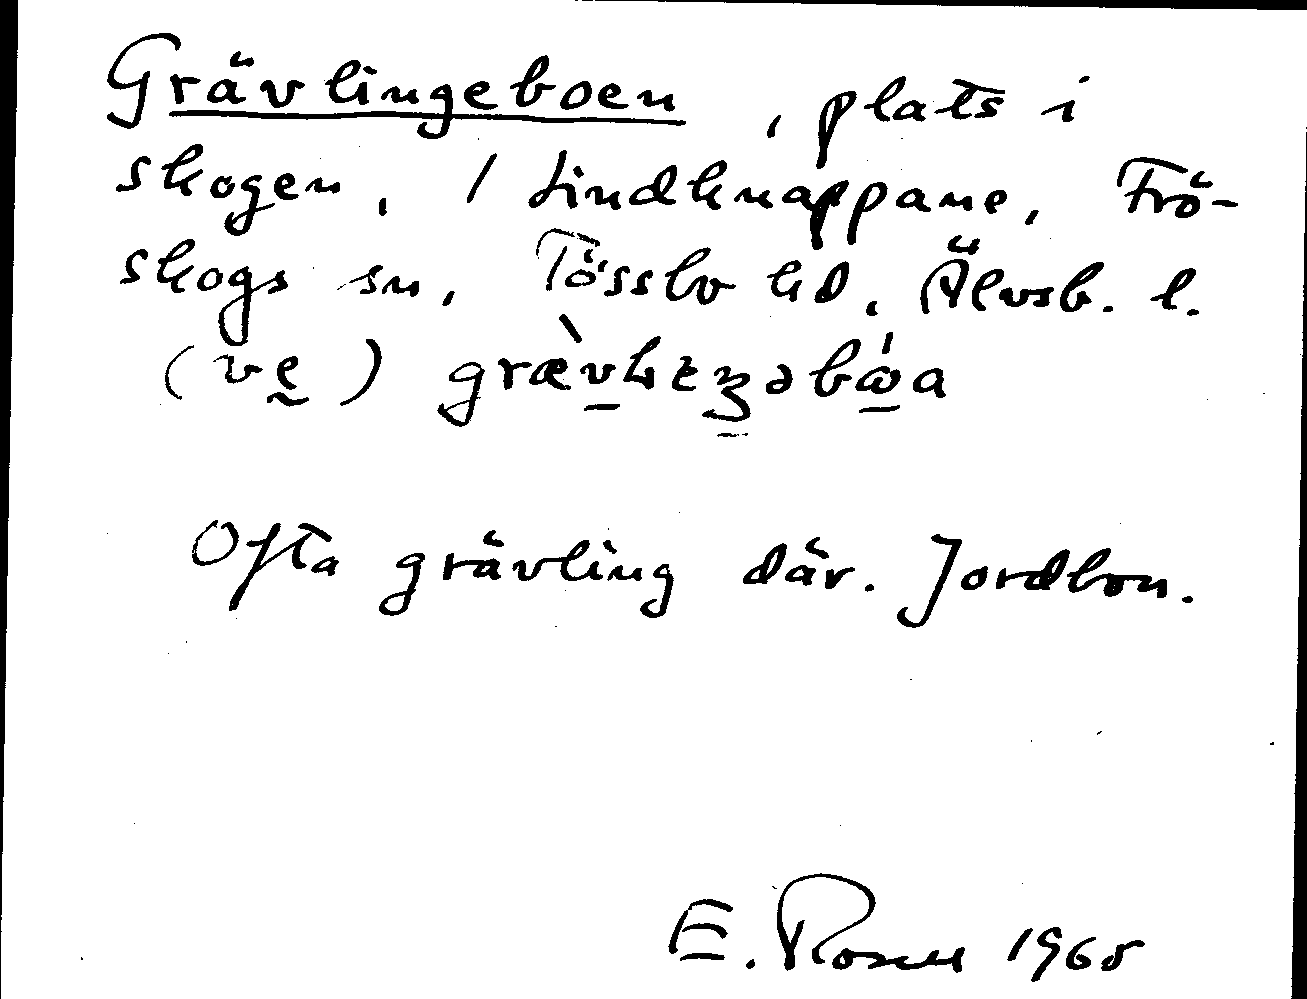 Grävlingeboen, plats i
skogen, 1 Lindknappane, Frö-
skogs sn, Tössbo hd, Älvsb. l.
(ve)
Ofta grävling där. Jordbon.
E. Rosell 1965